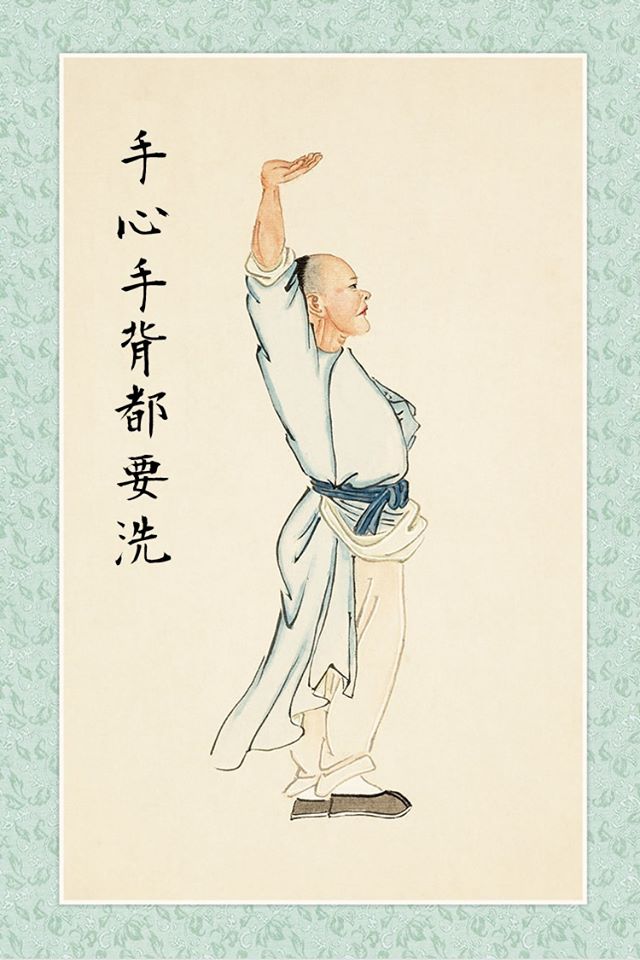 手心手背都要洗